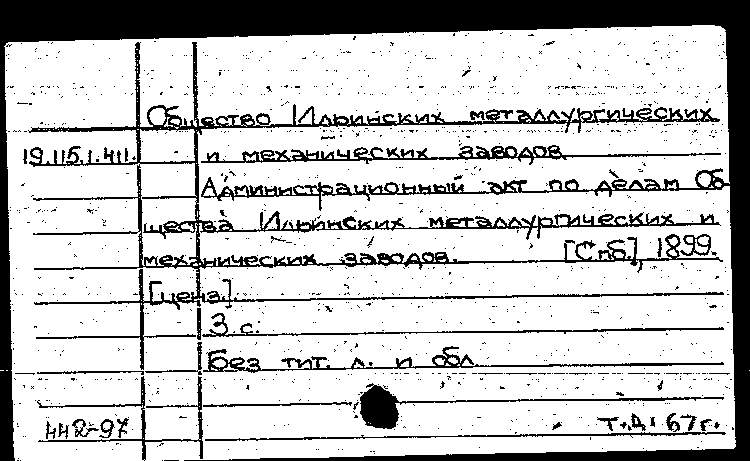 Общество Ильинских металлургических
19.115.1.411. и механических заводов
Административный акт по делам Об-
щества Ильинских металлургических и
механических заводов. [Спб.], 1899.
[ценз.].
3 с.
Без тит. л. и обл
442-97 т.д. 67г.